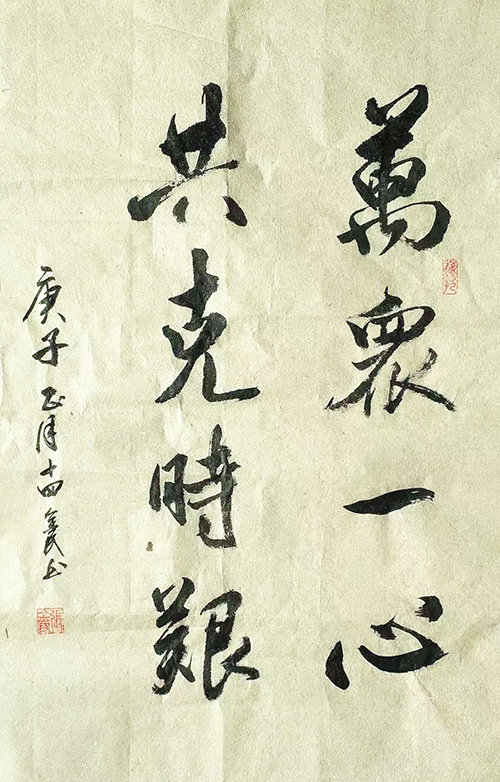 萬衆一心
共克時艱
庚子正月十四書